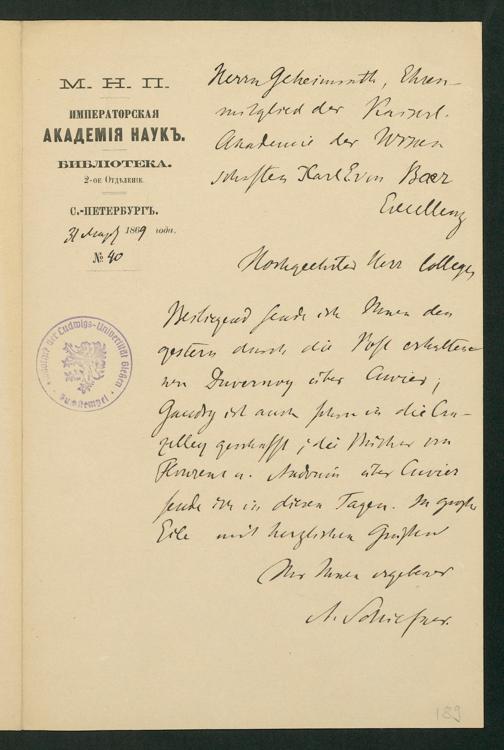 М. Н. П.
ИМПЕРАТОРСКАЯ
АКАДЕМІЯ НАУКЪ.
БИБЛІОТЕКА.
2-ое Отдѣленіе.
С.-ПЕТЕРБУРГЪ.
31 Марта 1869 года.
№ 40
Herrn Geheimrath, Ehren-
mitglied der Kaiserl.
Akademie der Wissen
schaften Karl E von Baer
Excellenz
Hochgeehrter Herr College,
Beiliegend sende ich Ihnen den
gestern durch die Post erhaltenen
von Duvernoy über Cuvier;
Gaudry ist auch schon in die Can-
zelley geschafft; die Bücher von
Flourens u. Audouin über Cuvier
sende ich in diesen Tagen. In großer
Eile mit herzlichen Grüßen
Ihr Ihnen ergebener
A. Schiefner.
der Ludwigs-Universität Gießen
Buchstempel
189